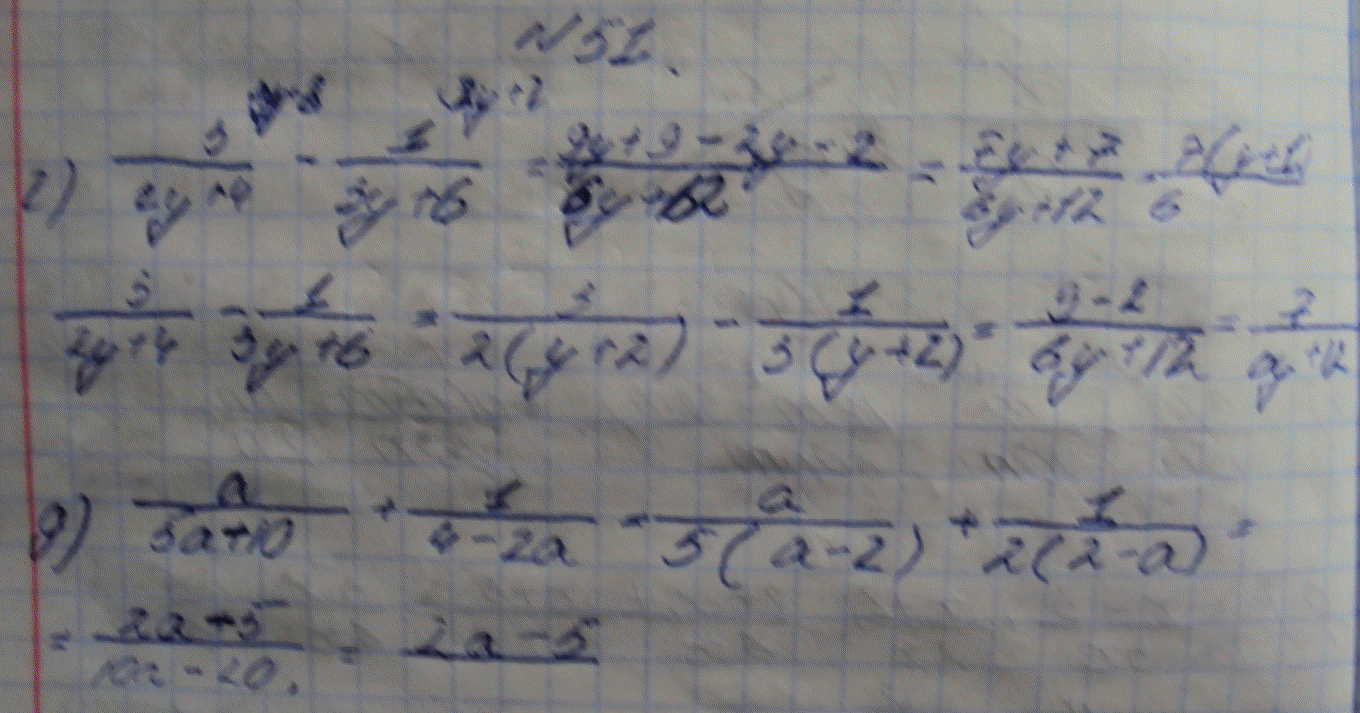 N 51.
2) 3/(2y+4) - 1/(3y+6) = (9y+9-2y-2)/(6y+12) = (7y+7)/(6y+12) 7(y+1)/6
3/(2y+4) - 1/(3y+6) = 3/(2(y+2)) - 1/(3(y+2)) = (9-2)/(6y+12) = 7/(6y+12)
a/(5a+10) + 1/(4-2a) = a/(5(a-2)) + 1/(2(2-a)) =
= (2a+5)/(10a-20) = 2a-5